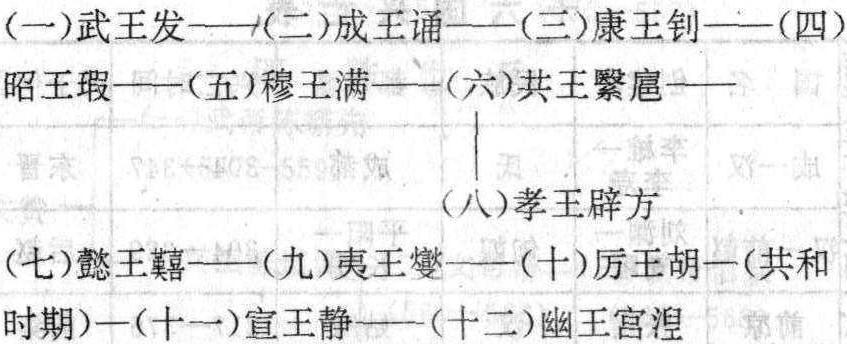 (一)武王发——(二)成王诵——(三)康王钊——(四)
昭王瑕——(五)穆王满——(六)共王繄扈——
(八)孝王辟方
(七)懿王囏——(九)夷王燮——(十)厉王胡—(共和
时期)—(十一)宣王静——(十二)幽王宫湼